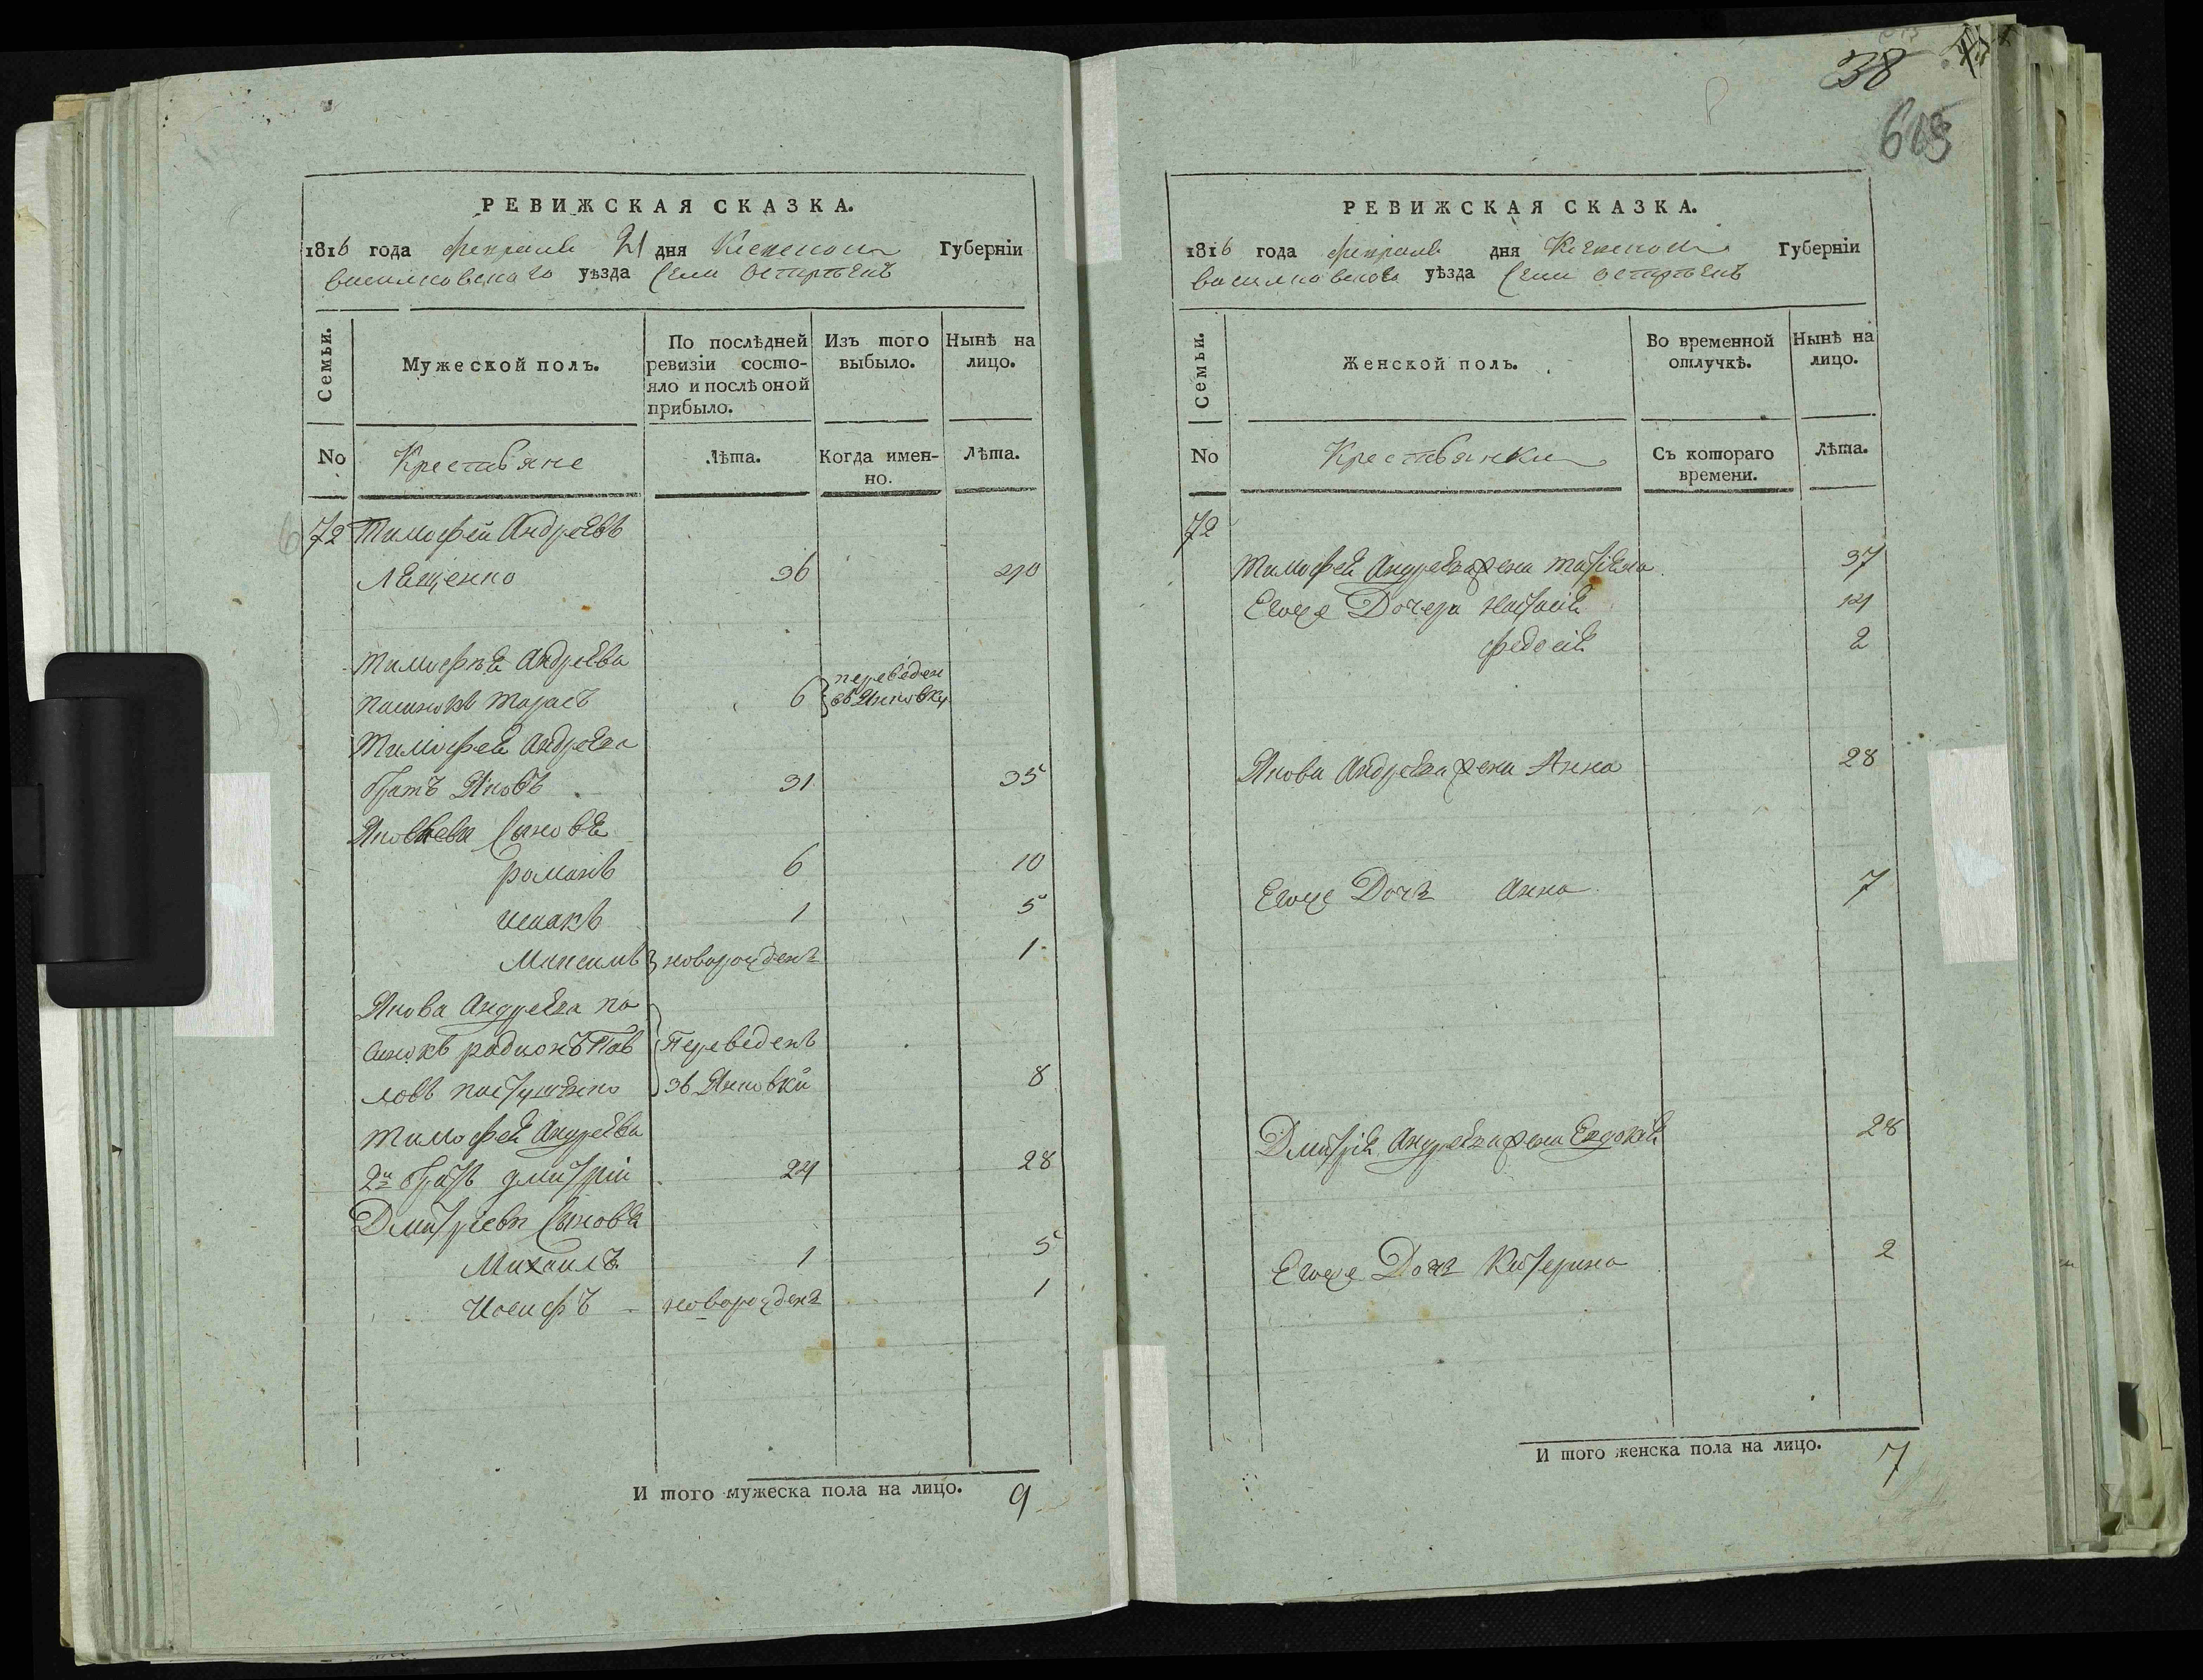 38
РЕВИЖСКАЯ СКАЗКА.
1816 года февраля 21 дня Киевской Губерніи
василковского уѣзда Села Острѣекъ
Семьи.
Мужеской полъ.
По послѣдней ревизіи состояло и послѣ оной прибыло.
Изъ того выбыло.
Нынѣ на лицо.
No
Крестьяне
Лѣта.
Когда именно.
Лѣта.
72 Тимофей Андрѣевъ
Лѣщенко 36 40
Тимофѣя Андрѣева
пасинокъ Тарасъ 6 переведен въ Янковку
Тимофея Андрѣева
братъ Яковъ 31 35
Яковлевы Синовя
романъ 6 10
исакъ 1 5
Максимъ новорожденъ 1
Якова Андрѣева па
синокъ радионъ Пав Переведенъ
ловъ зъ Янковки 8
Тимофея Андрѣева
2й братъ дмитрій 24 28
Дмитріевы Синовя
Михаилъ 1 5
Иосифъ новорожденъ 1
И того мужеска пола на лицо. 9
РЕВИЖСКАЯ СКАЗКА.
1816 года февраля дня Киевской Губерніи
василковского уѣзда Села Острѣекъ
Семьи.
Женской полъ.
Во временной отлучкѣ.
Нынѣ на лицо.
No
Крестьянки
Съ котораго времени.
Лѣта.
72
Тимофея Андрѣева жена 37
Егоже Дочери Настасія 14
федосія 2
Якова Андрѣева жена Анна 28
Егоже Дочь Анна 7
Дмитрія Андрѣева жена Евдокія 28
Егоже Дочь Катерина 2
И того женска пола на лицо. 7